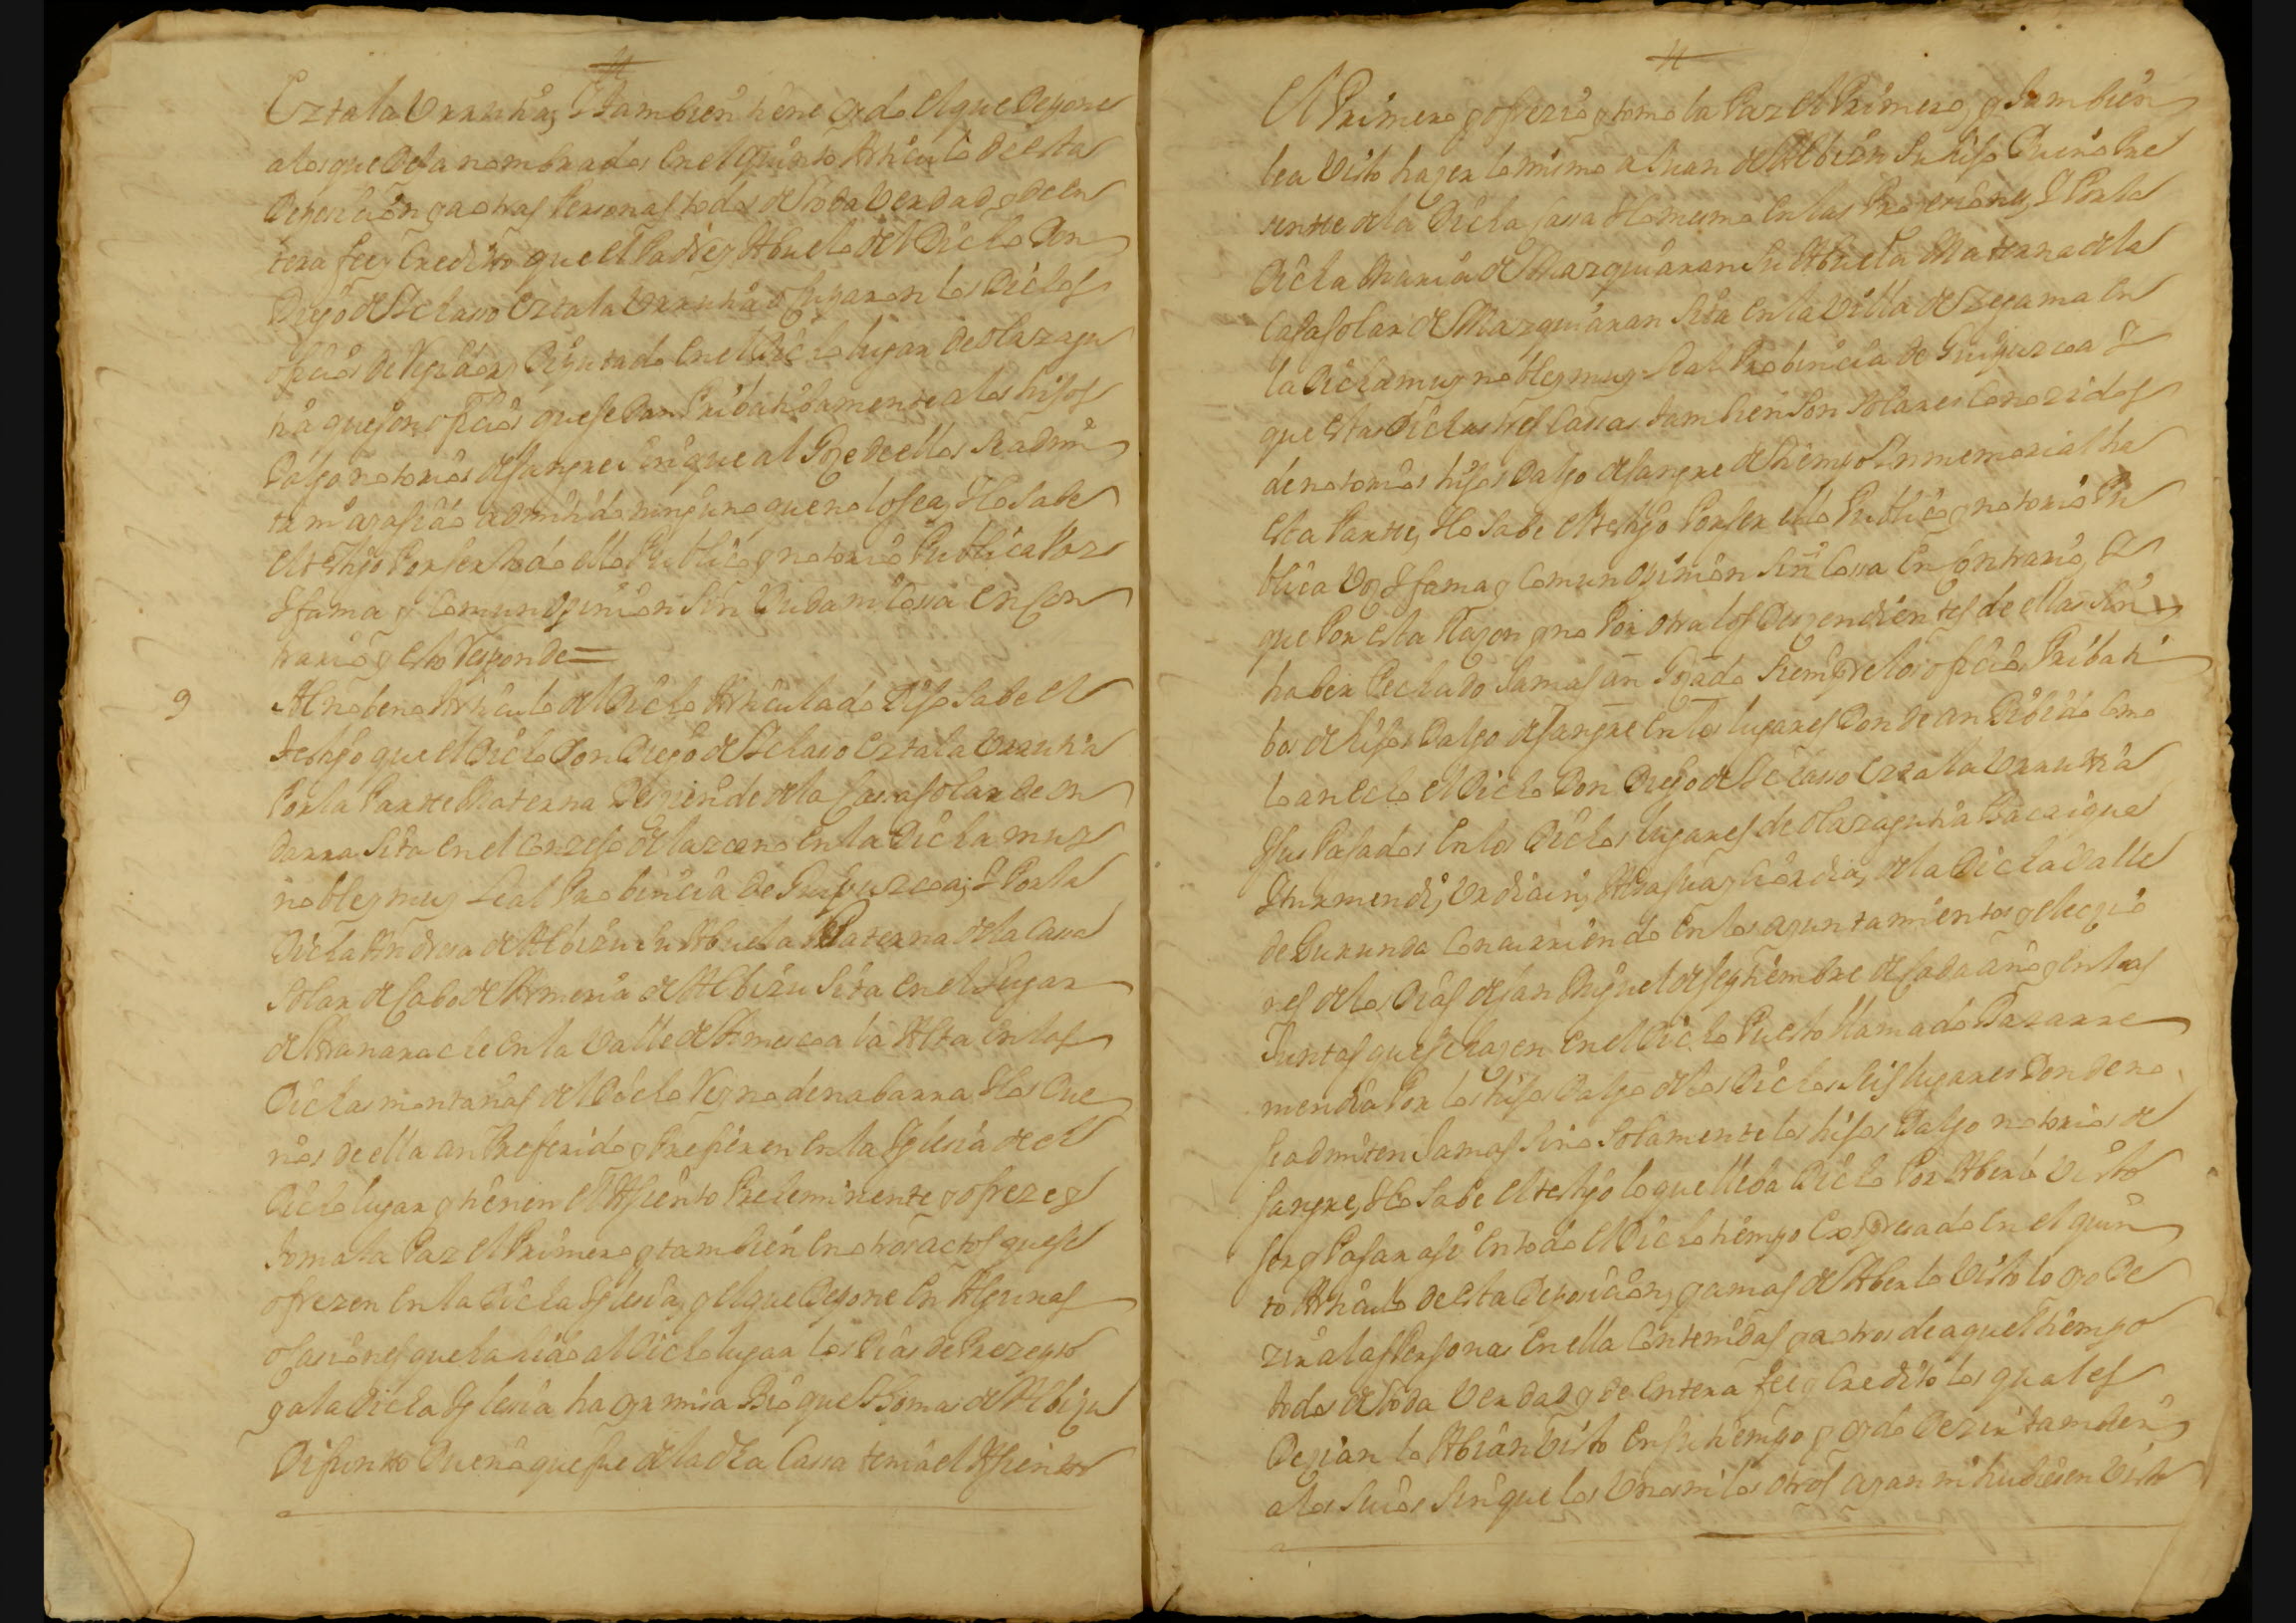 Vztala Vrrutia, Y tambien tiene oydo el que depone
a los que deja nombrados en el quinto Articulo de esta
deposicion y a otras Personas todas de toda Verdad y de en
tera fee y Credito que el Padre y Abuelo del Dicho Don
Diego de Vztala Vrrutia ocuparon los Dichos
ofiçios de Regidor y Diputado en el Dicho lugar de olazagu
tia que son ofiçios que se dan Pribatibamente a los hijos
dalgo notorios de sangre sin que al Goze de ellos se admi
ta ni aya sido admitido ninguno que no lo sea, Y lo sabe
el testigo Por ser todo ello Publico y notorio Publica Voz
Y fama y Comun opinion sin Duda ni Cossa en Con
trario y esto Responde=
9 Al nobeno Articulo del Dicho Articulado Dijo Sabe el
testigo que el Dicho Don Diego de Vztala Vrrutia
Por la Parte Materna Desciende de la Cassa solar de
darra Sita en el Conzejo de lazcano en la Dicha muy
noble y muy Leal Probinçia de Guipuzcoa; Y Por la
Dicha Andresa de Albizu su Abuela Paterna de la Cassa
Solar de Cabo de Armeria de Albizu Sita en el Lugar
de Aranarache en la Valle de Amescoa la Alta en las
Dichas montañas del Dicho Reyno de nabarra Y los Due
ños de ella an Preferido y Prefieren en la Yglesia de el
Dicho lugar y tienen el Asiento Preheminente y ofreze y
toma la Paz el Primero y tambien en otros actos que se
ofrezen en la Dicha Yglesia, y el que depone en Algunas
ocasiones que ha hido al Dicho lugar los Dias de Prezepto
y a la Dicha Yglesia ha oyr misa Bio que Thomas de Albizu
Difunto Dueño que fue de la dha Cassa tenia el Asiento
el Primero y ofrezio y tomo la Paz el Primero, y tambien
le a Visto hazer lo mismo a Juan de Albizu Su hijo Dueño Pre
sente de la Dicha Cassa Y lo mismo en las Prozesiones, Y Por la
Dicha Maria de Mazquiaran Su Abuela Materna de la
Casa solar de Mazquiaran Sita en la Villa de Zegama en
la Dicha muy noble y muy Leal Probinçia de Guipuzcoa Y
que estas Dichas tres Cassas tambien Son Solares Conozidos
de notorios hijos Dalgo de sangre de tiempo Ynmemorial ha
esta Parte, Y lo sabe el testigo Por ser ello Publico y notorio Pu
blica Voz Y fama y Comun opinion Sin Cossa en Contrario, Y
que Por esta Razon y no Por otra los Deszendientes de ellas sin
haber Pechado Jamas an Gozado siempre los ofiçios Pribati
bos de hijos Dalgo de sangre en los lugares Donde an Bibido Como
lo an echo el Dicho Don Diego de Vztala Vrrutia
Y sus Pasados en los Dichos lugares de olazagutia Bacaigua
Yturmendi, Vrdiain, Alsasua y Ciordia, de la Dicha Valle
de Burunda Concurriendo en los ayuntamientos y elecçio
nes de los Dias de san Miguel de septiembre de Cada año y en las
Juntas que se hazen en el Dicho Puesto llamado Bazarre
mendia Por los hijos Dalgo de los Dichos Seis lugares Donde no
se admiten Jamas Sino Solamente los hijos Dalgo notorios de
sangre, Y lo Sabe el testigo lo que lleba Dicho Por Aberlo Visto
ser y Pasar asi en todo el Dicho tiempo expresado en el quin
to Articulo de esta Deposicion, y a mas de Aberlo Visto lo oyo De
zir a las Personas en ella Contenidas y a otros de aquel tiempo
todos de toda Verdad y de entera fee y Credito los quales
Dezian lo Abian Visto en su tiempo y oydo Dezir tambien
a los Suios Sin que los Vnos ni los otros ayan ni hubiesen Visto